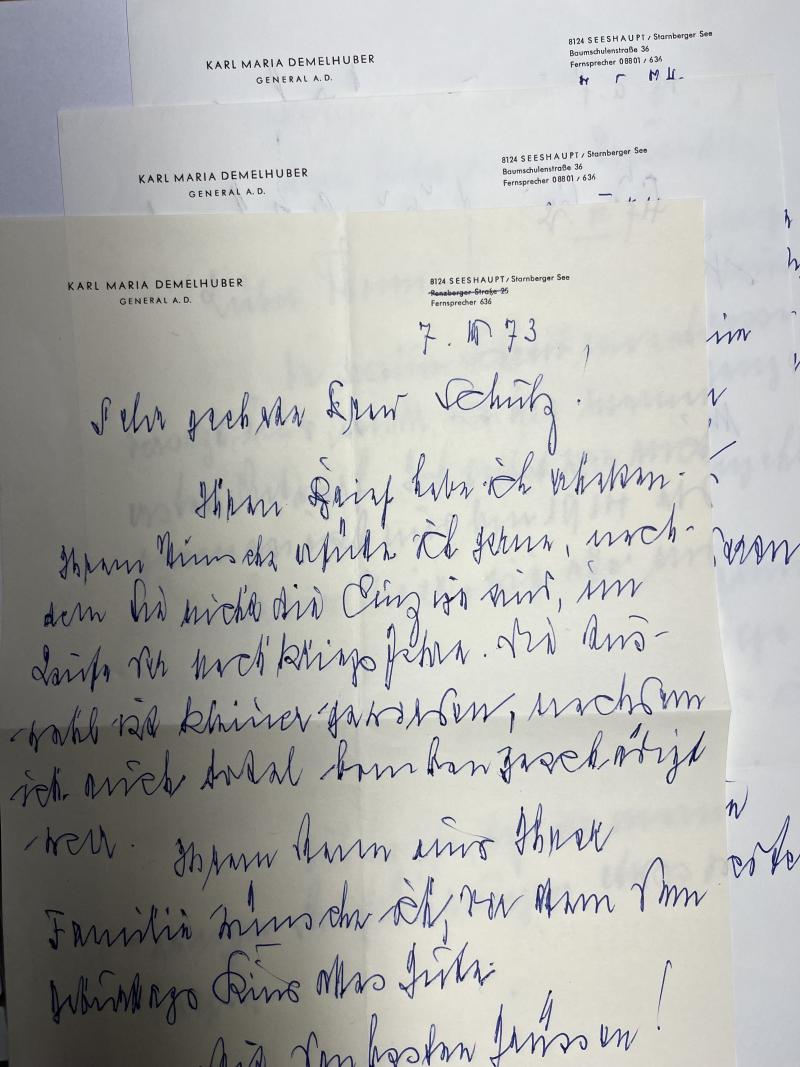 KARL MARIA DEMELHUBER
GENERAL A. D.
8124 SEESHAUPT / Starnberger See
Baumschulenstraße 36
Fernsprecher 08801 / 636
KARL MARIA DEMELHUBER
GENERAL A. D.
8124 SEESHAUPT / Starnberger See
Baumschulenstraße 36
Fernsprecher 08801 / 636
KARL MARIA DEMELHUBER
GENERAL A. D.
8124 SEESHAUPT / Starnberger See
Renzberger Straße 25
Fernsprecher 636
7. 73
Sehr geehrte Frau Schütz!
Ihren Brief habe ich erhalten.
Ihrem Wunsche erfülle ich gerne, nach-
dem Sie nicht die Einzige sind, im
Laufe der Nachkriegsjahre. Die Aus-
wahl ist kleiner geworden, nachdem
ich auch total bombengeschädigt
war. Ihrem Mann und Ihrer
Familie wünsche ich, vor allem dem
Geburtstags alles Gute.
Mit den besten Grüssen!